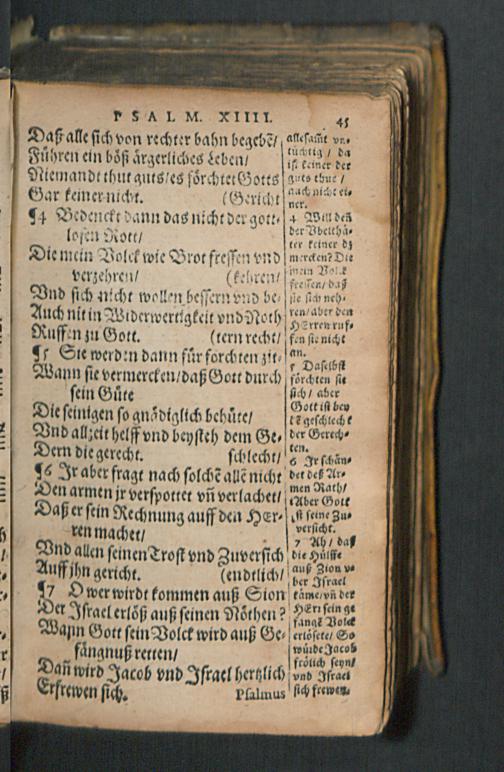 PSALM. XIIII. 45
Daß alle sich von rechter bahn begebē/
Führen ein böß ärgerliches Leben/
Niemandt thut guts/es förchtet Gotts
Gar keiner nicht. (Gericht
¶4 Bedenckt dann das nicht der gott-
losen Rott/
Die mein Volck wie Brot fressen vnd
verzehren/ (kehren/
Vnd sich nicht wollen bessern vnd be-
Auch nit in Widerwertigkeit vnd Noth
Ruffen zu Gott. (tern recht/
¶5 Sie werden dann für forchten zit-
Wann sie vermercken/daß Gott durch
sein Güte
Die seinigen so gnädiglich behüte/
Vnd allzeit helff vnd beysteh dem Ge-
Dern die gerecht. schlecht/
¶6 Jr aber fragt nach solchē allē nicht
Den armen jr verspottet vñ verlachet/
Daß er sein Rechnung auff den HEr-
ren machet/
Vnd allen seinen Trost vnd Zuversich
Auff ihn gericht. (endtlich/
¶7 O wer wirdt kommen auß Sion
Der Jsrael erlöß auß seinen Nöthen?
Wann Gott sein Volck wird auß Ge-
fängnuß retten/
Dañ wird Jacob vnd Jsrael hertzlich
Erfrewen sich.
Psalmus
allesam̃t vn-
tüchtig / da
ist keiner der
guts thue /
auch nicht ei-
ner.
4 Will deñ
der Vbelthä-
ter keiner dz
mercken? Die
mein Volck
fressen/ daß
sie sich neh-
ren/aber den
HErren ruf-
fen sie nicht
an.
5 Daselbst
förchten sie
sich / aber
Gott ist bey
dē geschlecht
der Gerech-
ten.
6 Jr schän-
det deß Ar-
men Rath/
Aber Gott
ist seine Zu-
versicht.
7 Ah/ daß
die Hülffe
auß Zion v-
ber Jsrael
käme/vñ der
HErr sein ge
fangē Volck
erlösete/ So
würde Jacob
frölich seyn/
vnd Jsrael
sich frewen.